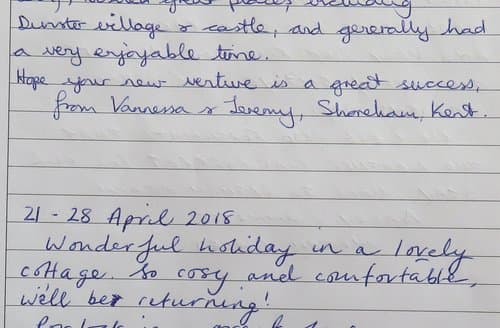 great places, including
Dunster village & castle, and generally had
a very enjoyable time.
Hope your new venture is a great success,
from Vannessa & Jeremy, Shoreham, Kent.
21 - 28 April 2018
Wonderful holiday in a lovely
cottage. So cosy and comfortable,
we'll be returning!